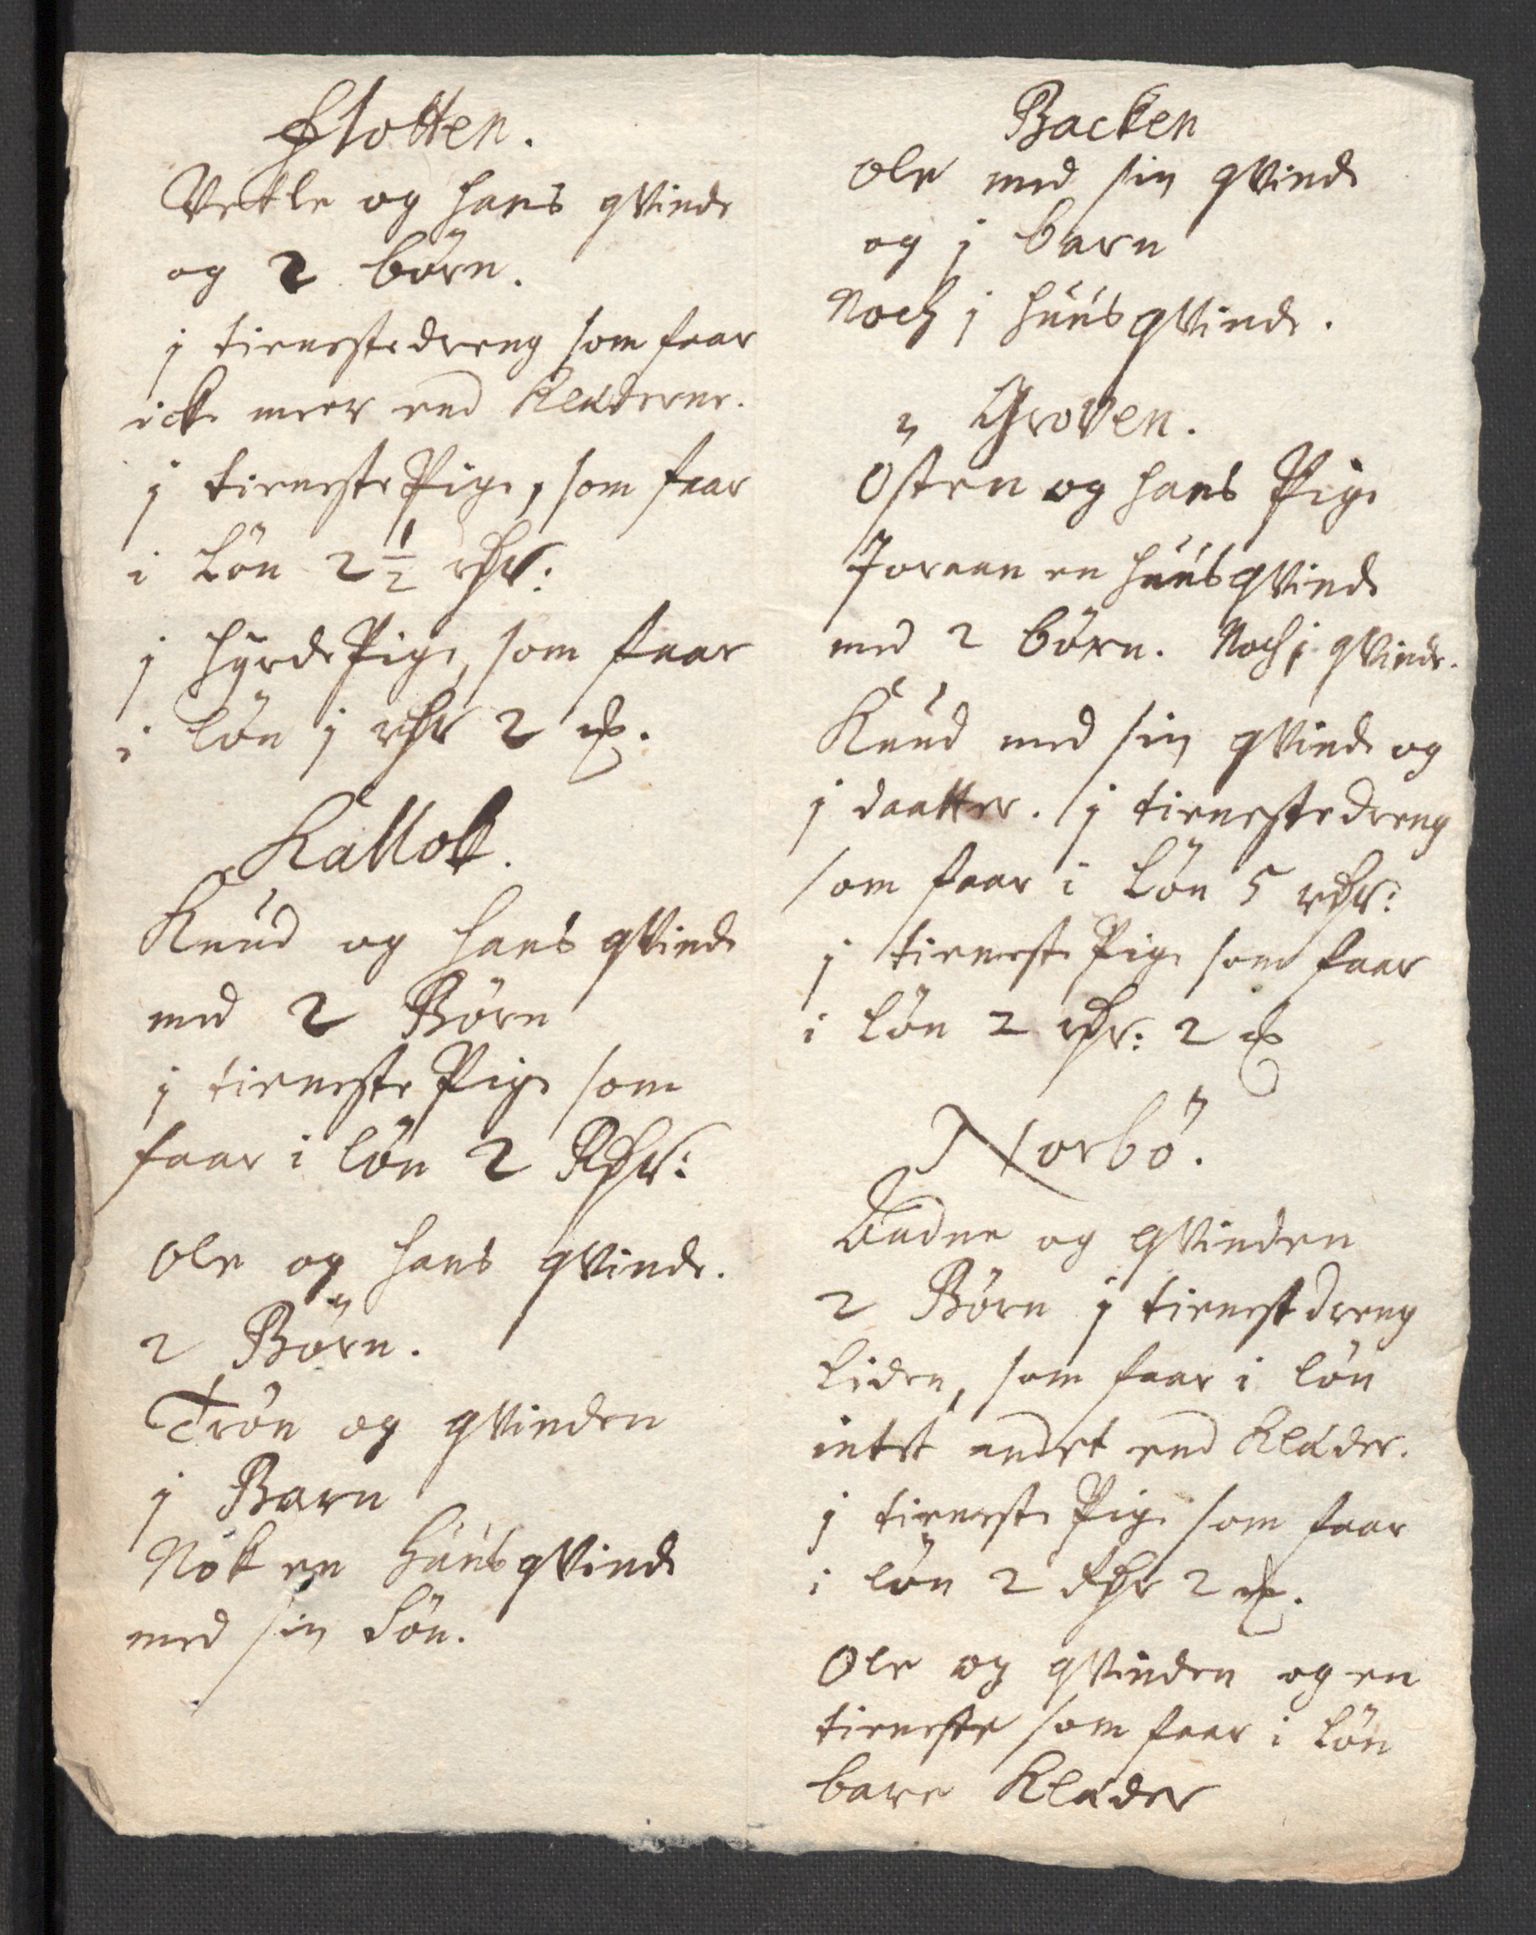 Flotten.
Vetle og hans qVinde
og 2 börn.
j tienestedreng som faar
icke meer end Klæderne.
j tienestePige, som faar
i Lön 2 1/2 rdr:
j hyrdePige, som faar
i lön j rdr 2 mk.
Kallok.
Knud og hans qVinde
med 2 Börn
j tienestePige som
faar i lön 2 Rdr:
Ole og hans qVinde.
2 Börn.
Trön og qVinden
j Barn
Nok en HuusqVinde
med sin Sön.
Backen
Ole med sin qVinde
og j barn
Noch j huusqVinde.
Groven.
Osten og hans Pige
Joraan en huusqVinde
med 2 börn. Noch j qVinde.
Knud med sin qVinde og
j daatter. j tienestedreng
som faar i Lön 5 rdr:
j tienestePige som faar
i lön 2 rdr: 2 mk
Norbö.
qVinden
2 Börn j tienestdreng
Liden, som faar i lön
intet andet end Klæder.
j tienestePige som faar
i lön 2 rdr 2 mk.
Ole og qVinden og en
tieneste som faar i Lön
bare Klæder